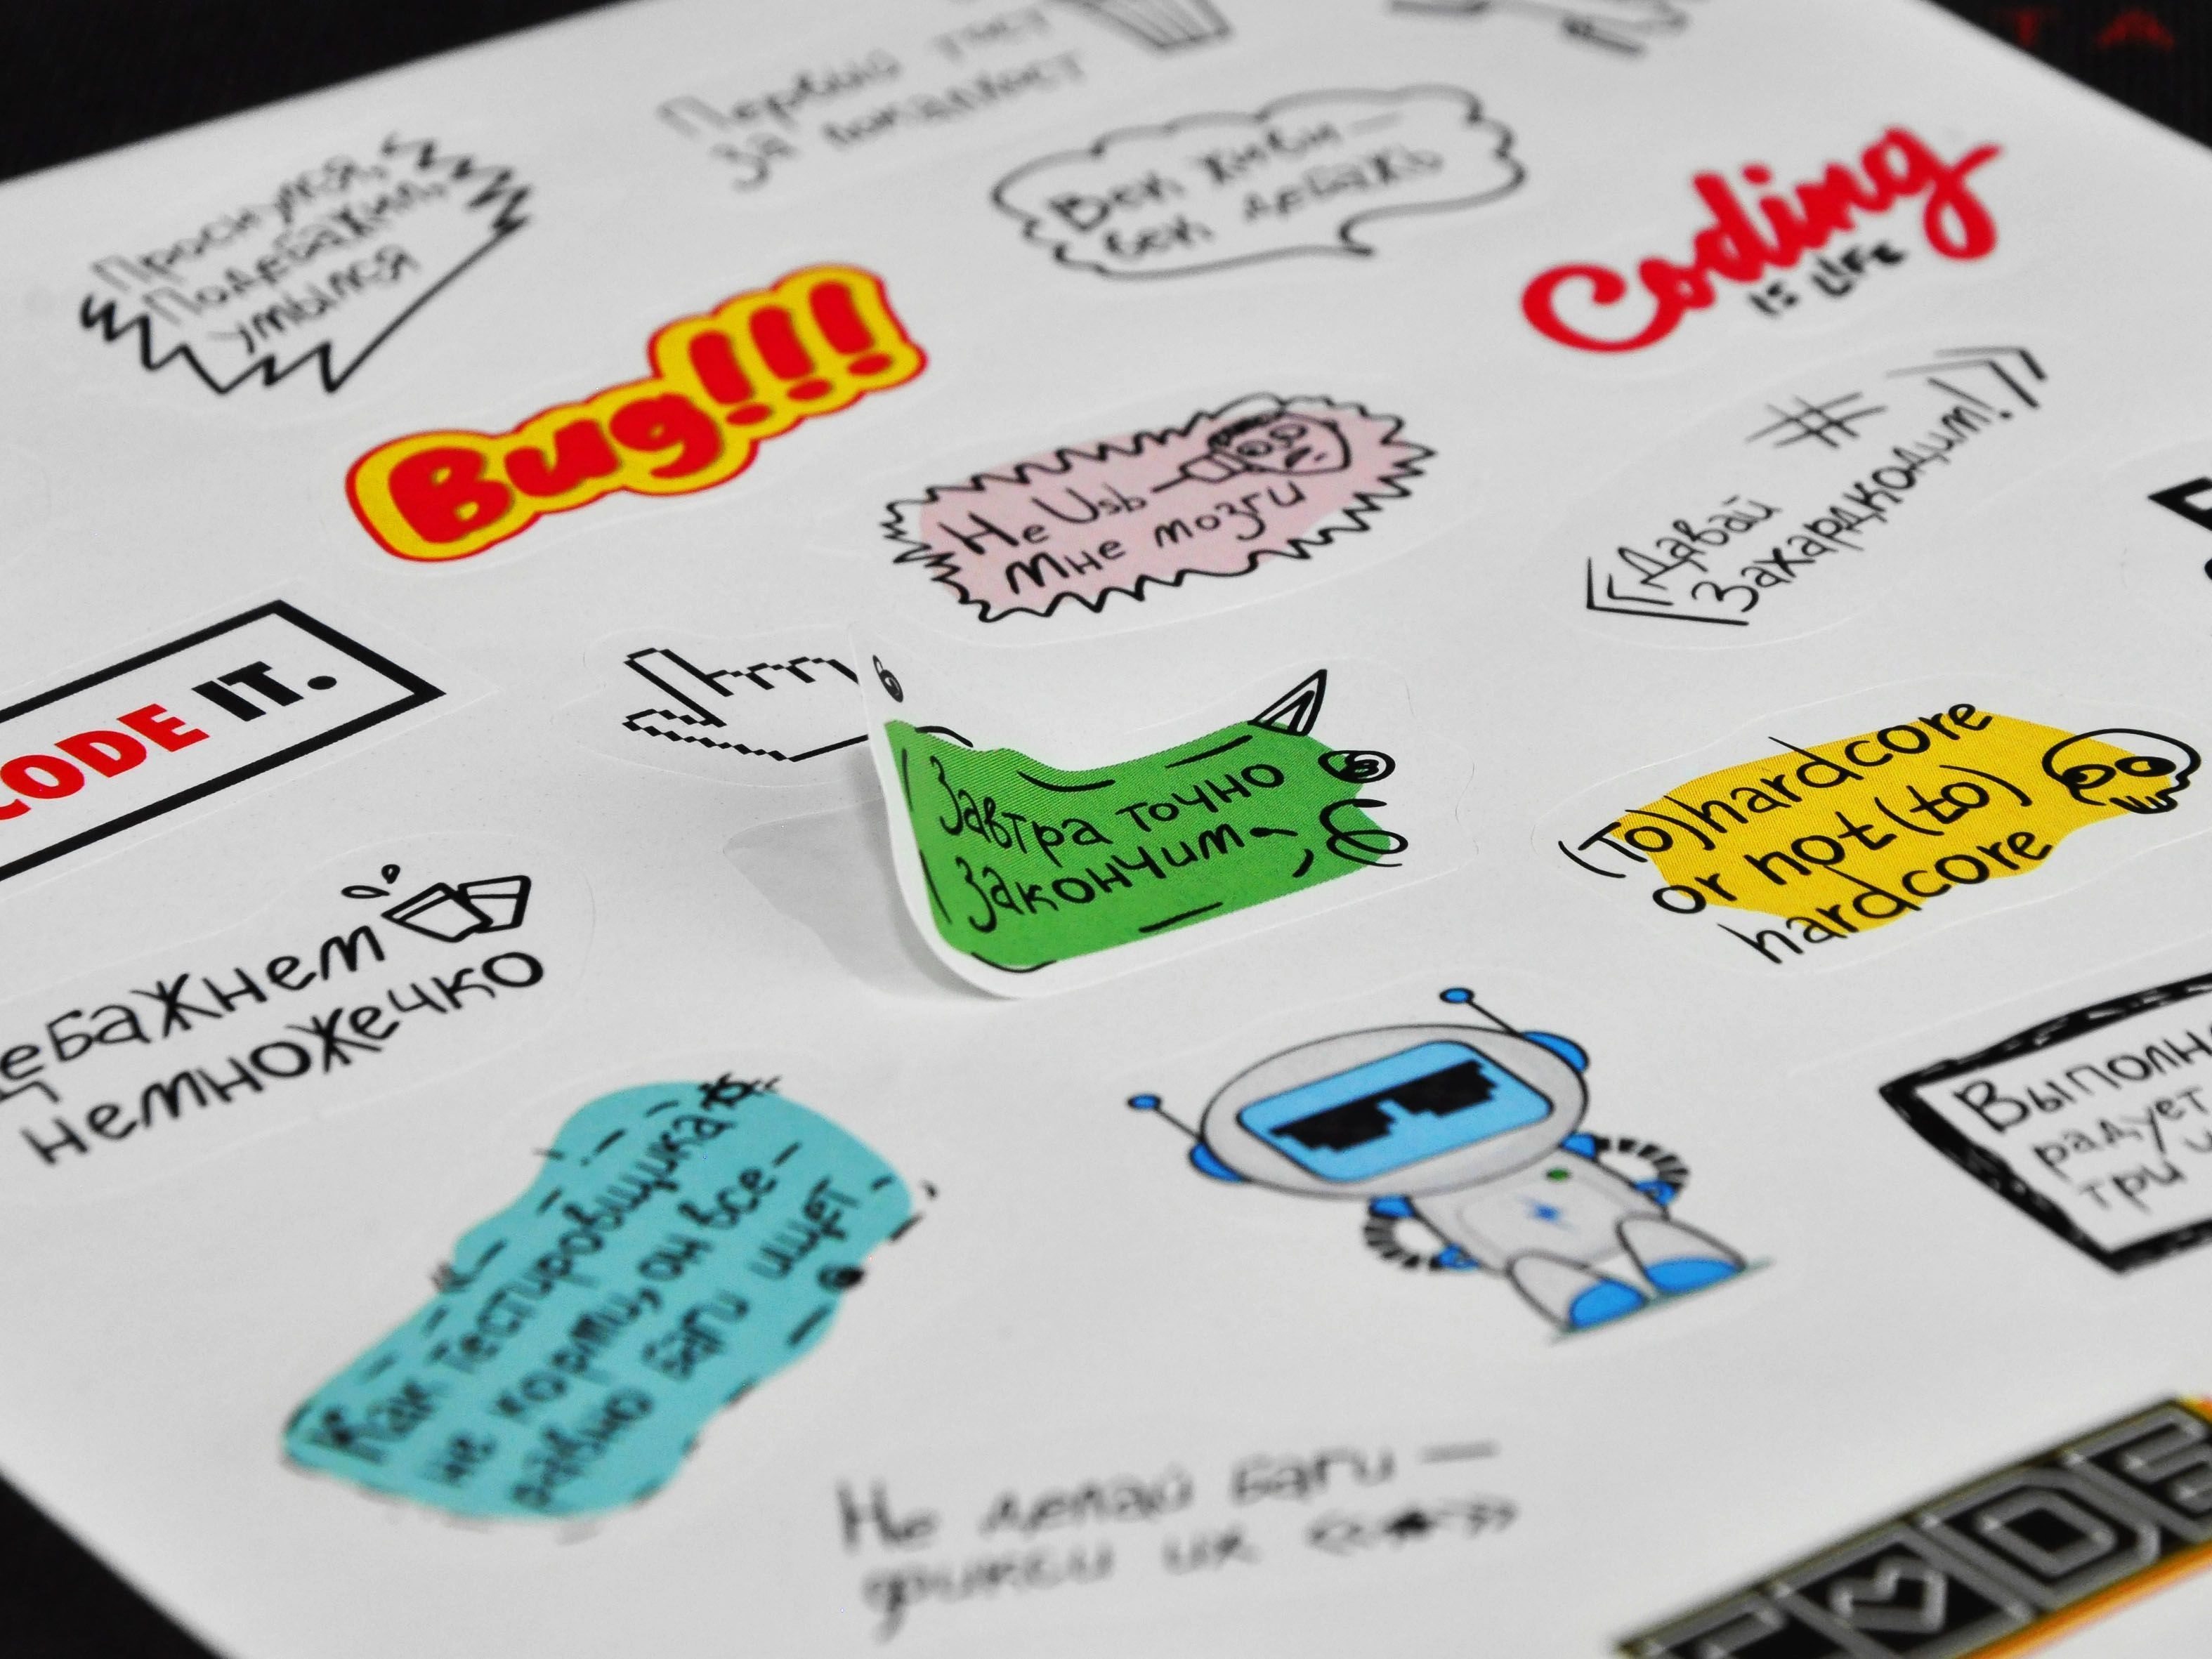 Первый тост
за локалхост
Проснулся,
Подебажил,
умылся
Век живи —
век дебажь
Coding
IS LIFE
Bug!!!
Не Usb
мне мозги
#
Давай
Захардкодим!
CODE IT.
Завтра точно
Закончим
(To) hardcore
or not (to)
hardcore
дебажнем
немножечко
Как тестировщика
не корми, он все-
равно баги ищет
радует
три
Не делай баги —
фикси их